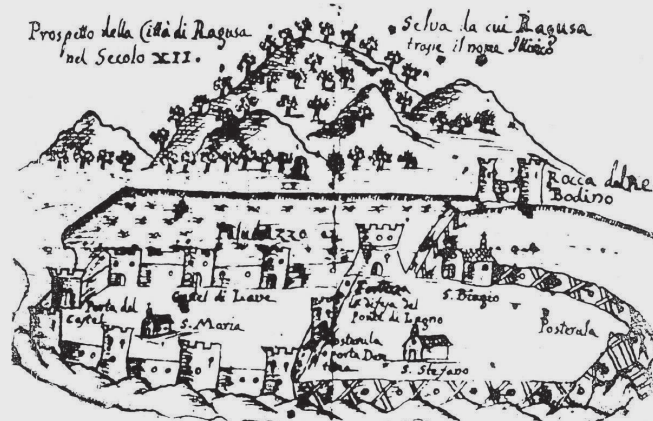 Prospetto della Città di Ragusa
nel Secolo XII.
Selva la cui Ragusa
trasse il nome Illirico
Rocca del Re
Bodino
S. Biagio
Castel di Lave
Porta del
Castel
S. Maria
Fortezza
la difesa del
Ponte di Legno
Posterula
Posterula
Porta
S. Stefano